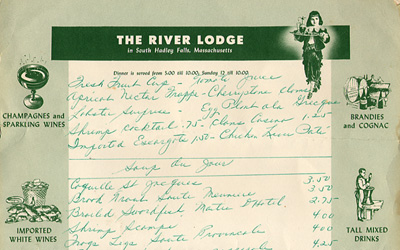 THE RIVER LODGE
in South Hadley Falls, Massachusetts
Dinner is served from 5:00 till 10:00, Sunday 12 till 10:00.
Fresh Fruit Cup - Tomato Juice
Apricot Nectar Frappe - Cherrystone Clams
Lobster Surprise - Egg Plant a la Grecque
Shrimp Cocktail .75 - Clams Casino 1.25
Imported Escargots 1.50 - Chicken Liver Pate
Soup du Jour
Coquille St Jacques 3.50
Brook Trout Saute Meuniere 3.50
Broiled Swordfish Maitre D'Hotel 2.75
Shrimp Scampi 4.00
Frogs Legs Saute Provencale 4.00
4.25
CHAMPAGNES and
SPARKLING WINES
IMPORTED
WHITE WINES
BRANDIES
and COGNAC
TALL MIXED
DRINKS